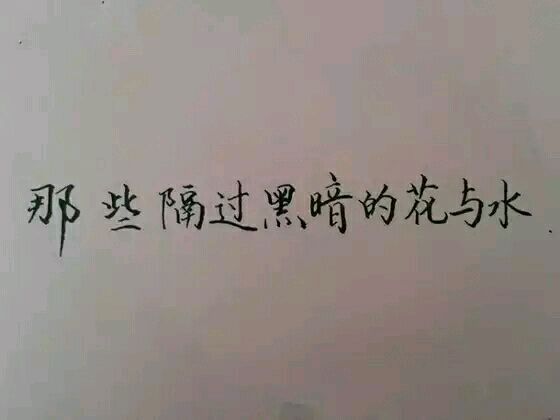 那些隔过黑暗的花与水